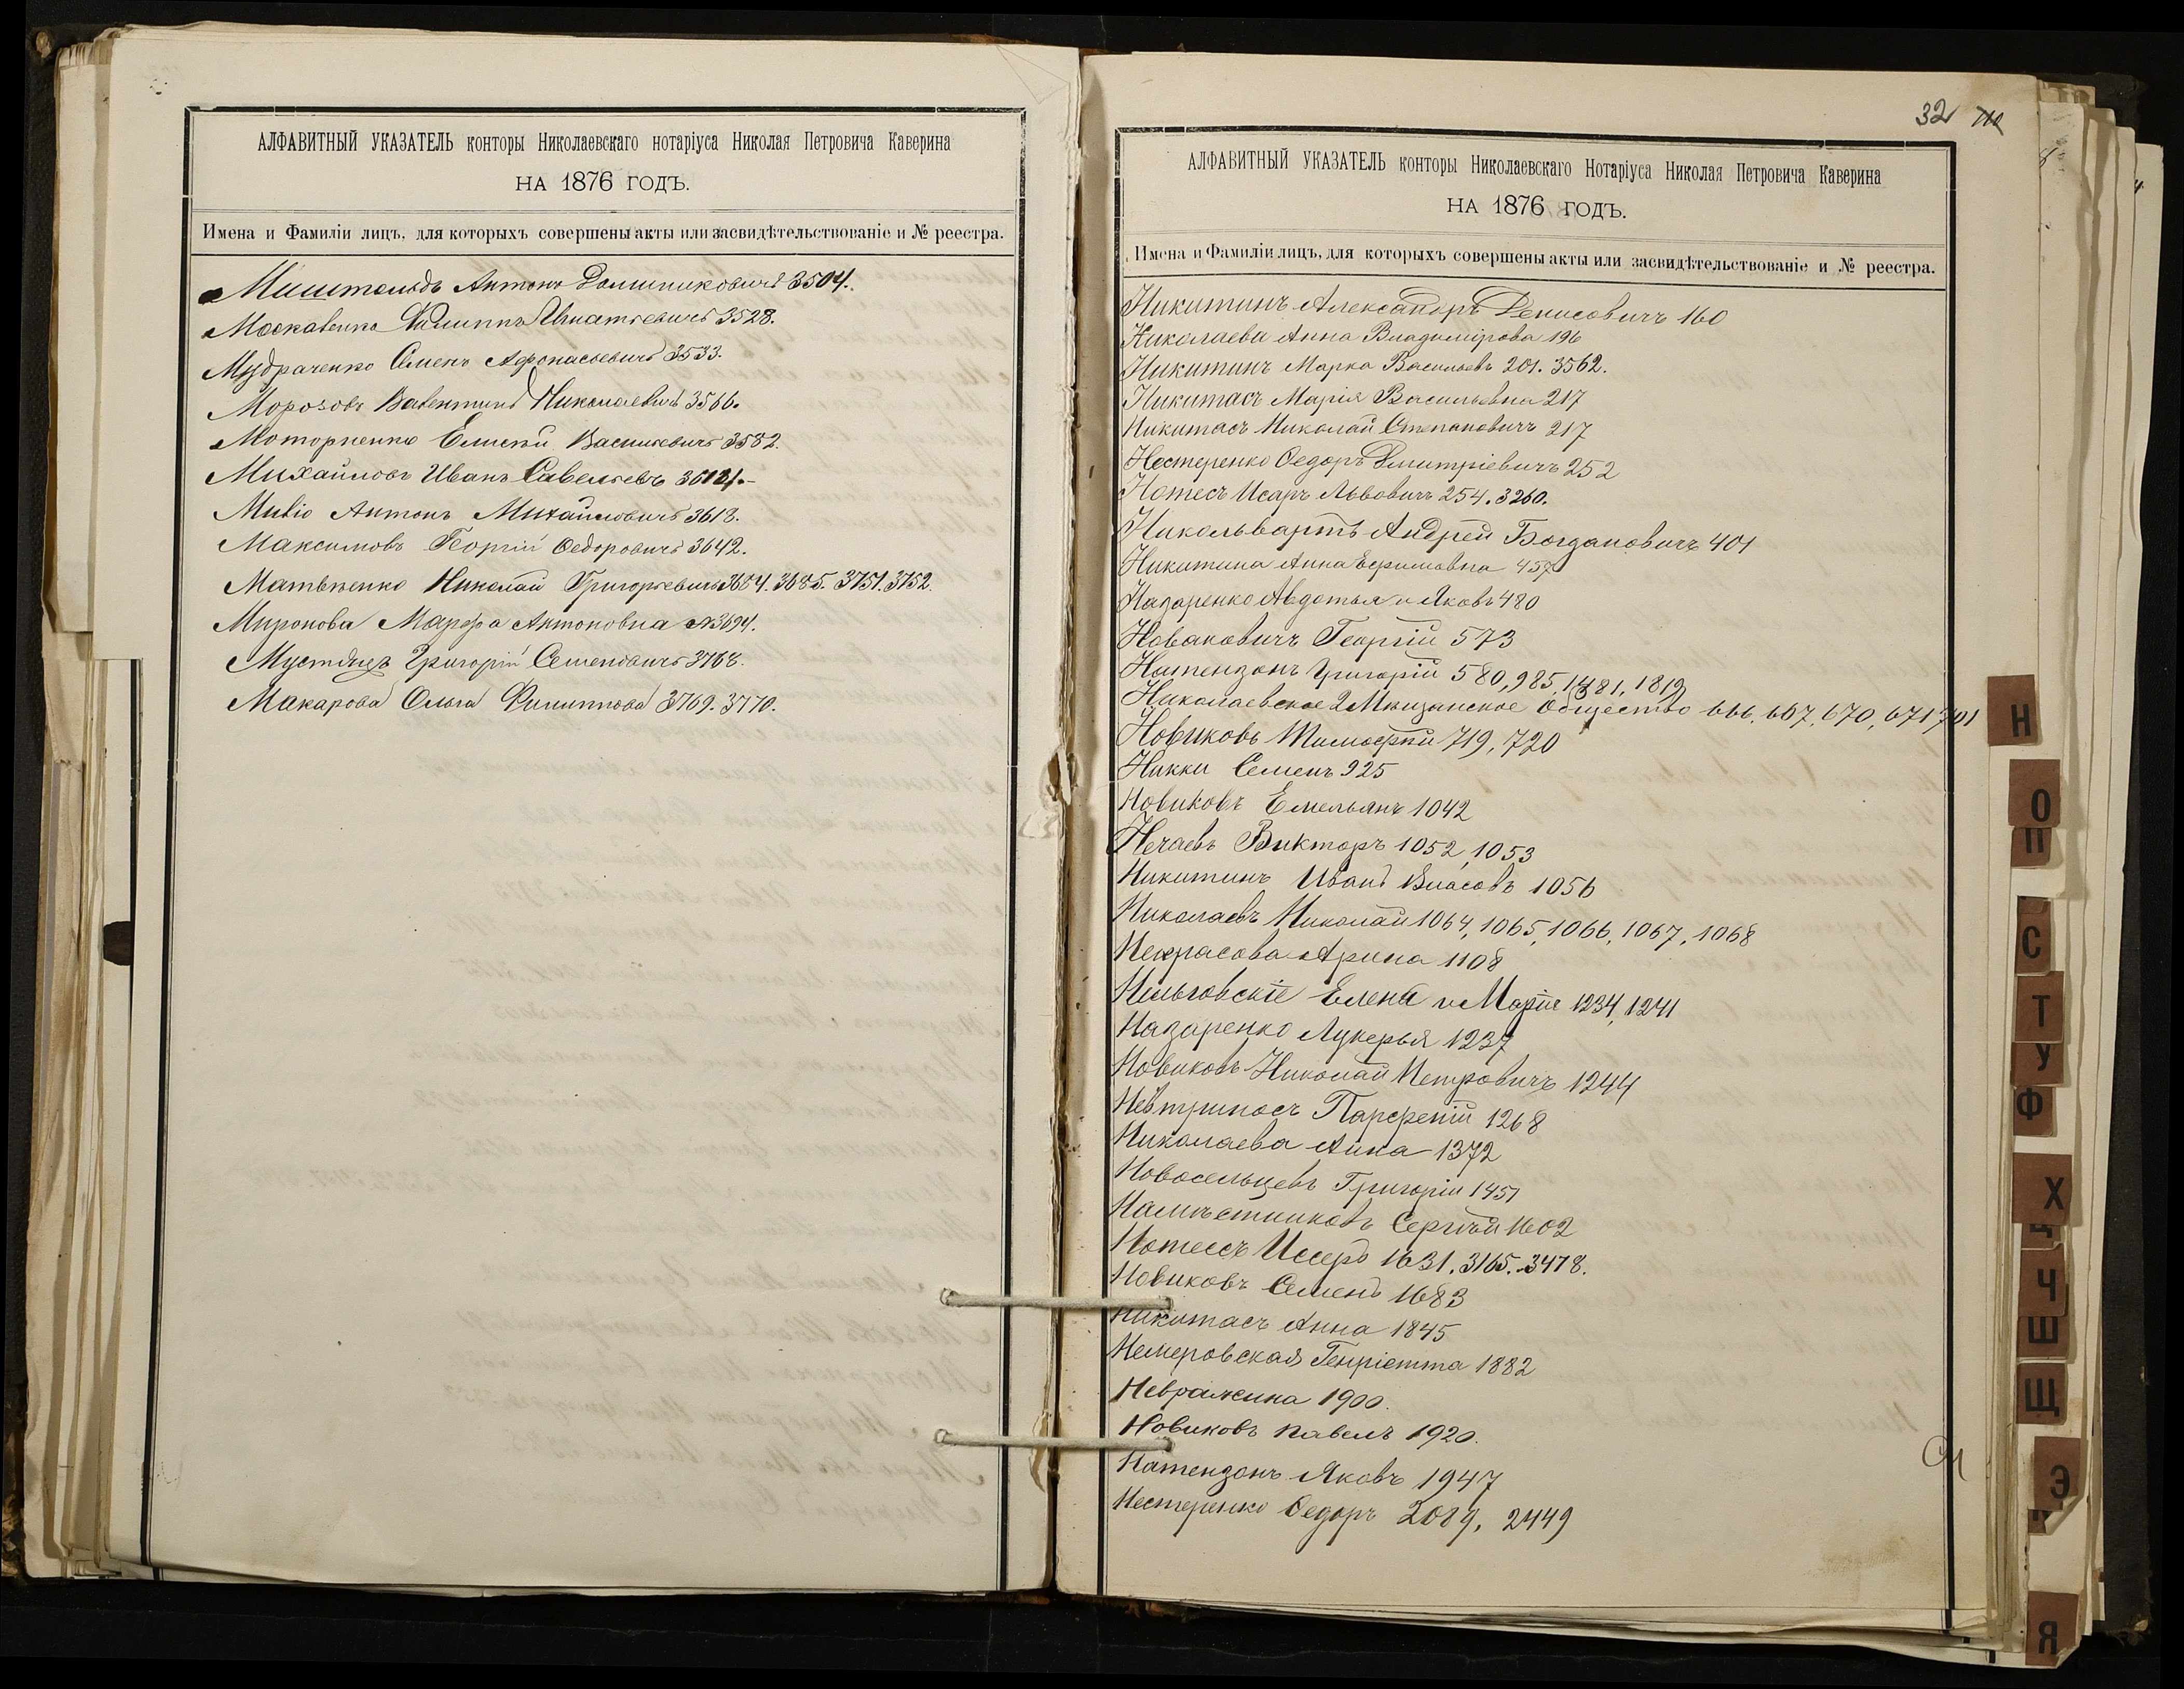 АЛФАВИТНЫЙ УКАЗАТЕЛЬ конторы Николаевскаго нотаріуса Николая Петровича Каверина
НА 1876 ГОДЪ.
Имена и Фамиліи лицъ, для которыхъ совершены акты или засвидѣтельствованіе и № реестра.
Антонъ Доминиковичъ 3504.
Москавенко Филиппъ Игнатьевичъ 3528.
Мудраченко Семенъ Афонасьевичъ 3533.
Морозовъ Валентинъ Николаевичъ 3566.
Моторненко Елисей Васильевичъ 3582.
Михайловъ Иванъ Савельевъ
Антонъ Михайловичъ 3613.
Максимовъ Георгій Федоровичъ 3642.
Матвѣенко Николай Григорьевичъ 3684. 3685. 3751. 3752.
Миронова Марфа Антоновна №3694.
Григорій Семеновичъ 3768.
Макарова Ольга Филиппова 3769. 3770.
32
АЛФАВИТНЫЙ УКАЗАТЕЛЬ конторы Николаевскаго Нотаріуса Николая Петровича Каверина
НА 1876 ГОДЪ.
Имена и Фамиліи лицъ, для которыхъ совершены акты или засвидѣтельствованіе и № реестра.
Никитинъ Александръ Денисовичъ 160
Николаева Анна Владимірова 196
Никитинъ Марко Васильевъ 201. 3562.
Никитасъ Марія Васильевна 217
Никитасъ Николай Степановичъ 217
Нестеренко Ѳедоръ Дмитріевичъ 252
Нотесъ Исаръ Львовичъ 254. 3260.
Никольвартъ Андрей Богдановичъ 401
Никитина Анна Ефимовна 457
Назаренко Авдотья и Яковъ 480
Новаковичъ Георгій 573
Натензонъ Григорій 580, 985, 1481, 1819
Николаевское 2 Мѣщанское Общество 666, 667, 670, 671, 701
Новиковъ Тимофей 719, 720
Никки Семенъ 925
Новиковъ Емельянъ 1042
Нечаевъ Викторъ 1052, 1053
Никитинъ Иванъ Власовъ 1056
Николаевъ Николай 1064, 1065, 1066, 1067, 1068
Некрасова Арина 1108
Нельговскіе Елена и Марія 1234, 1241
Назаренко Лукерья 1237
Новиковъ Николай Петровичъ 1244
Невтриносъ Парфеній 1268
Николаева Анна 1372
Новосельцевъ Григорій 1451
Намѣстниковъ Сергѣй 1602
Нотесъ Иссеръ 1631. 3165. 3478.
Новиковъ Семенъ 1683
Никитасъ Анна 1845
Немеровская Генріетта 1882
Невражина 1900.
Новиковъ Павелъ 1920.
Натензонъ Яковъ 1947
Нестеренко Ѳедоръ 2089, 2449
Н
О
П
С
Т
У
Ф
Х
Ц
Ч
Ш
Щ
Э
Я